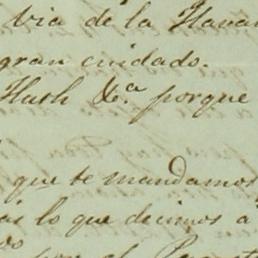 via de la Havan
gran cuidado.
Huth &.ª porque
que te mandamos
lo que decimos a
por el